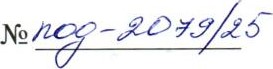 № под-2079/25